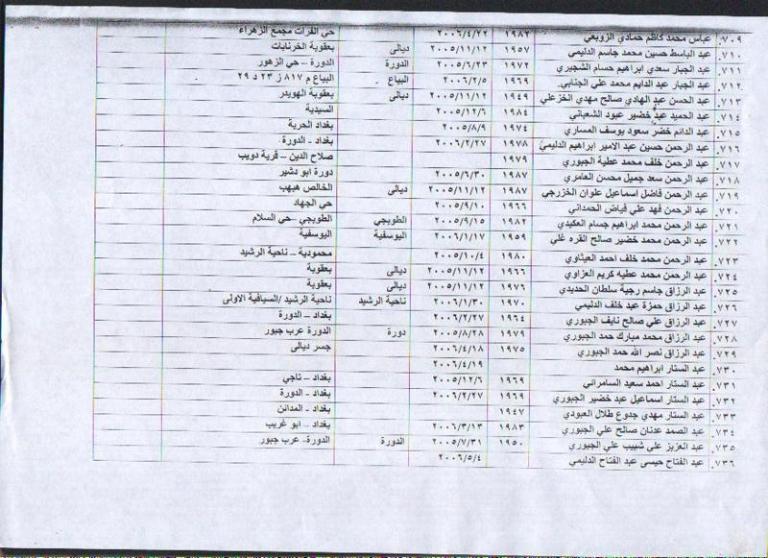 ٧٠٩. عباس محمد كاظم حمادي الزوبعي ١٩٨٢ ٢٠٠٦/٤/٢٢ حي الفرات مجمع الزهراء
٧١٠. عبد الباسط حسين محمد جاسم الدليمي ١٩٥٧ ٢٠٠٥/١١/١٢ ديالى بعقوبة الخرنابات
٧١١. عبد الجبار سعدي ابراهيم حسام الشجيري ١٩٧٢ ٢٠٠٥/٦/٢٣ الدورة الدورة – حي الزهور
٧١٢. عبد الجبار عبد الدايم محمد علي الجنابي ١٩٦٩ ٢٠٠٦/٢/٥ البياع البياع م ٨١٧ ز ٢٣ د ٢٩
٧١٣. عبد الحسن عبد الهادي صالح مهدي الخزعلي ١٩٤٩ ٢٠٠٥/١١/١٢ ديالى بعقوبة الهويدر
٧١٤. عبد الحميد عبد خضير عبود الشعباني ١٩٨٤ ٢٠٠٥/١٢/٦ السيدية
٧١٥. عبد الدائم خضر سعود يوسف العساري ١٩٧٤ ٢٠٠٥/٨/٩ بغداد الحرية
٧١٦. عبد الرحمن حسين عبد الامير ابراهيم الدليمي ١٩٧٨ ٢٠٠٦/٢/٢٧ بغداد - الدورة
٧١٧. عبد الرحمن خلف محمد عطية الجبوري ١٩٧٩ صلاح الدين – قرية دويب
٧١٨. عبد الرحمن سعد جميل محسن العامري ١٩٨٧ ٢٠٠٥/٦/٣٠ دورة ابو دشير
٧١٩. عبد الرحمن فاضل اسماعيل علوان الخزرجي ١٩٨٧ ٢٠٠٥/١١/١٢ ديالى الخالص هبهب
٧٢٠. عبد الرحمن فهد علي فياض الحمداني ١٩٦٦ ٢٠٠٥/٩/١٠ حي الجهاد
٧٢١. عبد الرحمن محمد ابراهيم جسام العكيدي ١٩٨٢ ٢٠٠٥/٩/١٥ الطوبجي الطوبجي –حي السلام
٧٢٢. عبد الرحمن محمد خضير صالح القره غلي ١٩٥٩ ٢٠٠٦/١/١٧ اليوسفية اليوسفية
٧٢٣. عبد الرحمن محمد خلف احمد العيثاوي ١٩٨٠ ٢٠٠٥/١٠/٤ محمودية – ناحية الرشيد
٧٢٤. عبد الرحمن محمد عطيه كريم العزاوي ١٩٦٦ ٢٠٠٥/١١/١٢ ديالى بعقوبة
٧٢٥. عبد الرزاق جاسم رجية سلطان الحديدي ١٩٧٦ ٢٠٠٥/١١/١٢ ديالى بعقوبة
٧٢٦. عبد الرزاق حمزة عبد خلف الدليمي ١٩٧٠ ٢٠٠٦/١/٣٠ ناحية الرشيد ناحية الرشيد /السيافية الاولى
٧٢٧. عبد الرزاق علي صالح نايف الجبوري ١٩٦٤ ٢٠٠٦/٢/٢٧ بغداد – الدورة
٧٢٨. عبد الرزاق محمد مبارك حمد الجبوري ١٩٧٩ ٢٠٠٥/٨/٢٨ دورة الدورة عرب جبور
٧٢٩. عبد الرزاق نصر الله حمد الجبوري ١٩٧٥ ٢٠٠٦/٤/١٨ جسر ديالى
٧٣٠. عبد الستار ابراهيم محمد ٢٠٠٦/٤/١٩
٧٣١. عبد الستار احمد سعيد السامرائي ١٩٦٩ ٢٠٠٥/١٢/٦ بغداد – تاجي
٧٣٢. عبد الستار اسماعيل عبد خضير الجبوري ١٩٦٩ ٢٠٠٦/٢/٢٧ بغداد - الدورة
٧٣٣. عبد الستار مهدي جدوع طلال العبودي ١٩٤٧ بغداد - المدائن
٧٣٤. عبد الصمد عدنان صالح علي الجبوري ١٩٨٣ ٢٠٠٦/٣/١٣ بغداد – ابو غريب
٧٣٥. عبد العزيز علي شبيب علي الجبوري ١٩٥٠ ٢٠٠٥/٧/٣١ الدورة الدورة- عرب جبور
٧٣٦. عبد الفتاح حيسى عبد الفتاح الدليمي ٢٠٠٦/٥/٤